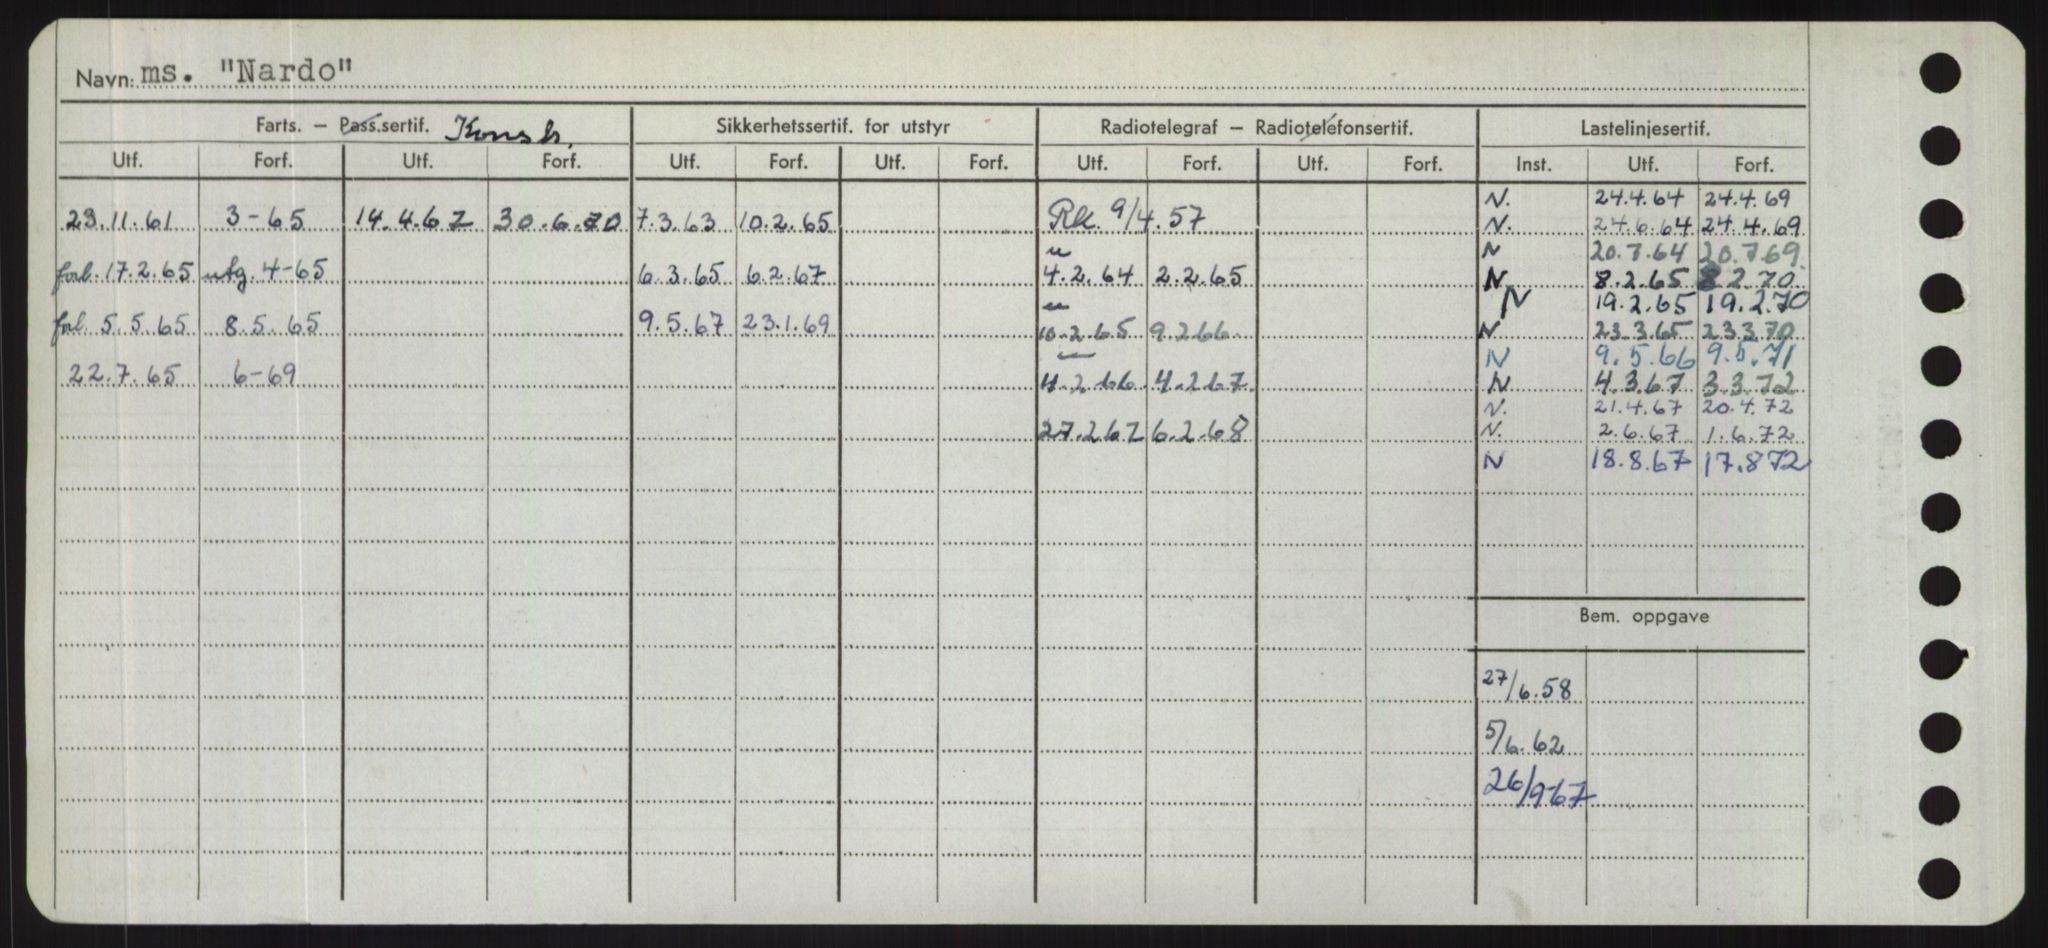 Navn: ms. "Nardo"
Farts. – Pass.sertif. Konstr. Sikkerhetssertif. for utstyr Radiotelegraf – Radiotelefonsertif. Lastelinjesertif.
Utf. Forf. Utf. Forf. Utf. Forf. Utf. Forf. Utf. Forf. Utf. Forf. Inst. Utf. Forf.
N. 24.4.64 24.4.69
23.11.61 3-65 14.4.67 30.6.70 7.3.63 10.2.65 Rk. 9/4.57 N. 24.6.64 24.4.69
" N 20.7.64 20.7.69
forl. 17.2.65 utg. 4-65 6.3.65 6.2.67 4.2.64 2.2.65 N 8.2.65 8.2.70
" N 19.2.65 19.2.70
forl. 5.5.65 8.5.65 9.5.67 23.1.69 10.2.65 9.2.66 N 23.3.65 23.3.70
N 9.5.66 9.5.71
22.7.65 6-69 4.2.66 4.2.67 N 4.3.67 3.3.72
N. 21.4.67 20.4.72
27.2.67 6.2.68 N. 2.6.67 1.6.72
N 18.8.67 17.8.72
Bem. oppgave
27/6.58
5/6.62
26/9-67